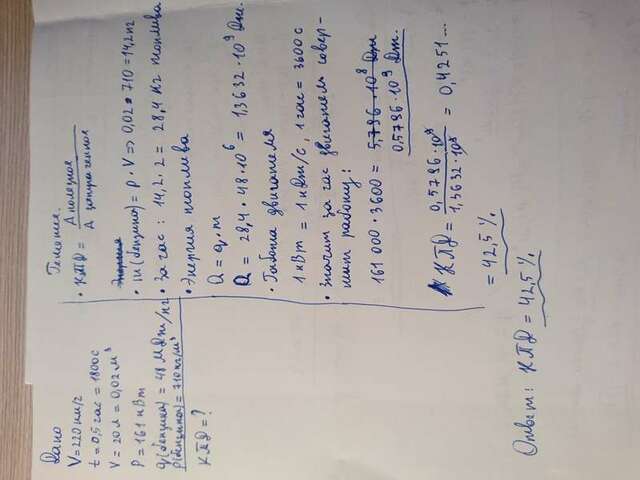 Дано
V = 220 км/г
t = 0,5 час = 1800 с
V = 20 л = 0,02 м³
P = 161 кВт
q(бензина) = 48 МДж/кг
ρ(бензина) = 710 кг/м³
КПД = ?
Решения.
• КПД = A полезное / A затраченное
Энергия
• m(бензина) = ρ · V => 0,02 · 710 = 14,2 кг
• За час : 14,2 · 2 = 28,4 кг топлива
• Энергия топлива
Q = q · m
Q = 28,4 · 48 · 10⁶ = 1,3632 · 10⁹ Дж.
• Работа двигателя
1 кВт = 1 кДж/с, 1 час = 3600 с
• Значит за час двигатель совер-
шит работу:
161 000 · 3600 = 5,796 · 10⁸ Дж
0,5796 · 10⁹ Дж.
КПД = 0,5796 · 10⁹ / 1,3632 · 10⁹ = 0,4251...
= 42,5 %.
Ответ: КПД = 42,5 %.